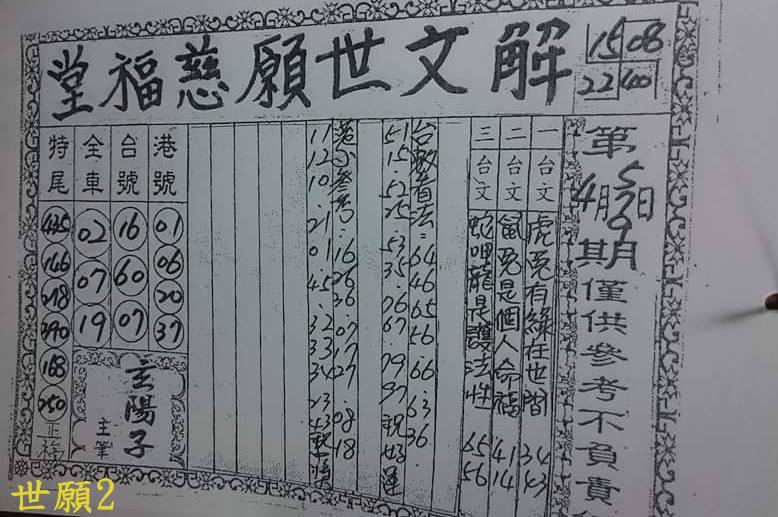 解文世願慈福堂
15 08
22 40
第57期
4月9日
僅供參考不負責
一 台文 虎兎有緣在世間 34 43
二 台文 鼠兎是個人命福 41 14
三 台文 蛇呷龍是護法性 65 56
台數看法：64 46 65 56.66.63 36
51 15.52 25.53 35.76 67 79 97 祝好運
港小參考：16 26 36.07 17 27.08 18
11 12 10.21 01 45.32 33 34 23 43
港號
01
06
20
37
台號
16
60
07
全車
02
07
19
特尾
445
146
218
390
168
250
玄陽子
主筆
世願2